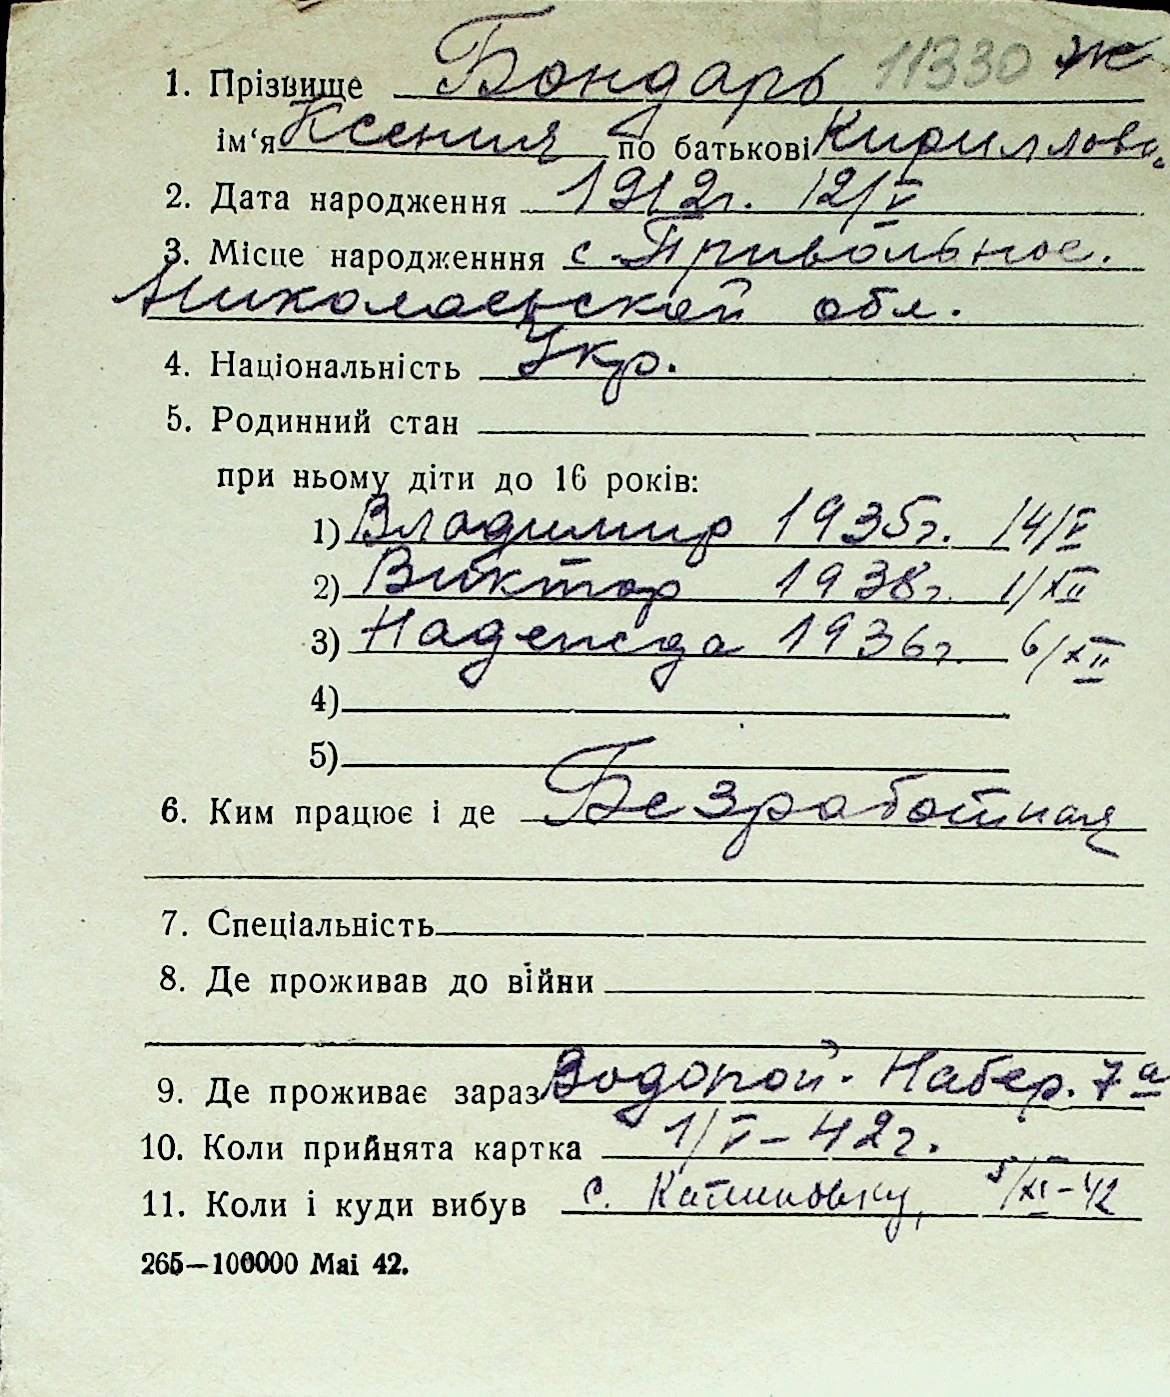 1. Прізвище Бондарь 11330 Ж
ім‘я Ксения по батькові Кирилловн.
2. Дата народження 1912г. 12/V
3. Місце народженння с. Привольное.
Николаевской обл.
4. Національність Укр.
5. Родинний стан
при ньому діти до 16 років:
1) Владимир 1935г. 14/V
2) Виктор 1938г. 1/XII
3) Надежда 1936г. 6/XII
4)
5)
6. Ким працює і де Безработная
7. Спеціальність
8. Де проживав до війни
9. Де проживає зараз Водопой. Набер. 7а
10. Коли прийнята картка 1/V-42г.
11. Коли і куди вибув с. 5/XI-42
265—100000 Маі 42.